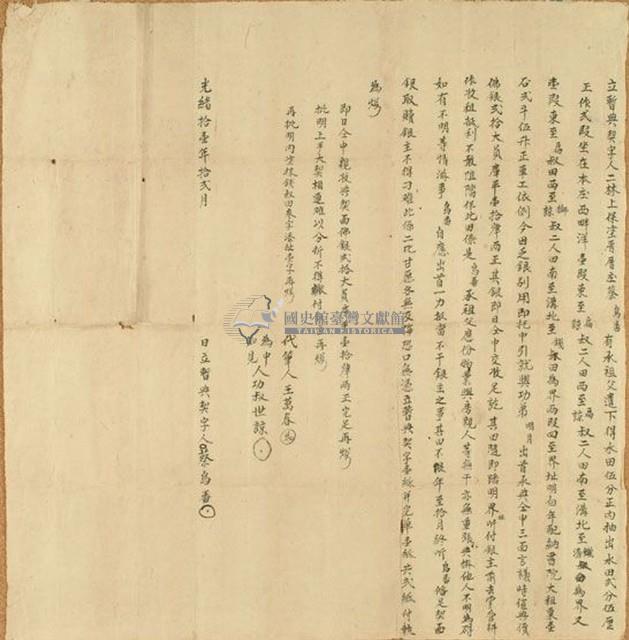 立暫典契字人二林上保塗厝厝庄蔡烏番有承祖父遺下得水田伍分正內抽出水田弍分伍厘
正作弍段坐在本庄西畔洋壹段東至烏叔二人田西至諒叔二人田南至溝北至為界又
壹段東至烏叔田西至諒叔二人田南至溝北至錢叔田為界兩段四至界址明白年配納書院大租粟壹
石弍斗伍升正車工依例今因乏銀別用即托中引就與功弟明月出首承典仝中三面言議時值典價
佛銀弍拾大員庫平壹拾肆兩正其銀即日仝中交收足訖其田隨即踏明界址付銀主前去掌管耕
作收租抵利不敢阻擋保此田係是烏番承祖父應份物業與房親人等無干亦無重張典掛他人不明為碍
如有不明等情滋事烏番自應出首一力抵當不干銀主之事其田不限年至拾月終听烏番俻足契面
銀取贖銀主不得刁難此係二比甘愿各無反悔恐口無憑立暫典契字壹紙并完單壹紙共弍紙付執
為炤
即日仝中親收過契面佛銀弍拾大員庫平壹拾肆兩正完足再炤
批明上手大契相連難以分折不得繳付再炤
再批明內塗抹錢叔田叁字添址壹字再炤
國史館臺灣文獻館
TAIWAN HISTORICA
代筆人王萬春
為中人功叔世諒
知見
光緒拾壹年拾弍月 日立暫典契字人蔡烏番